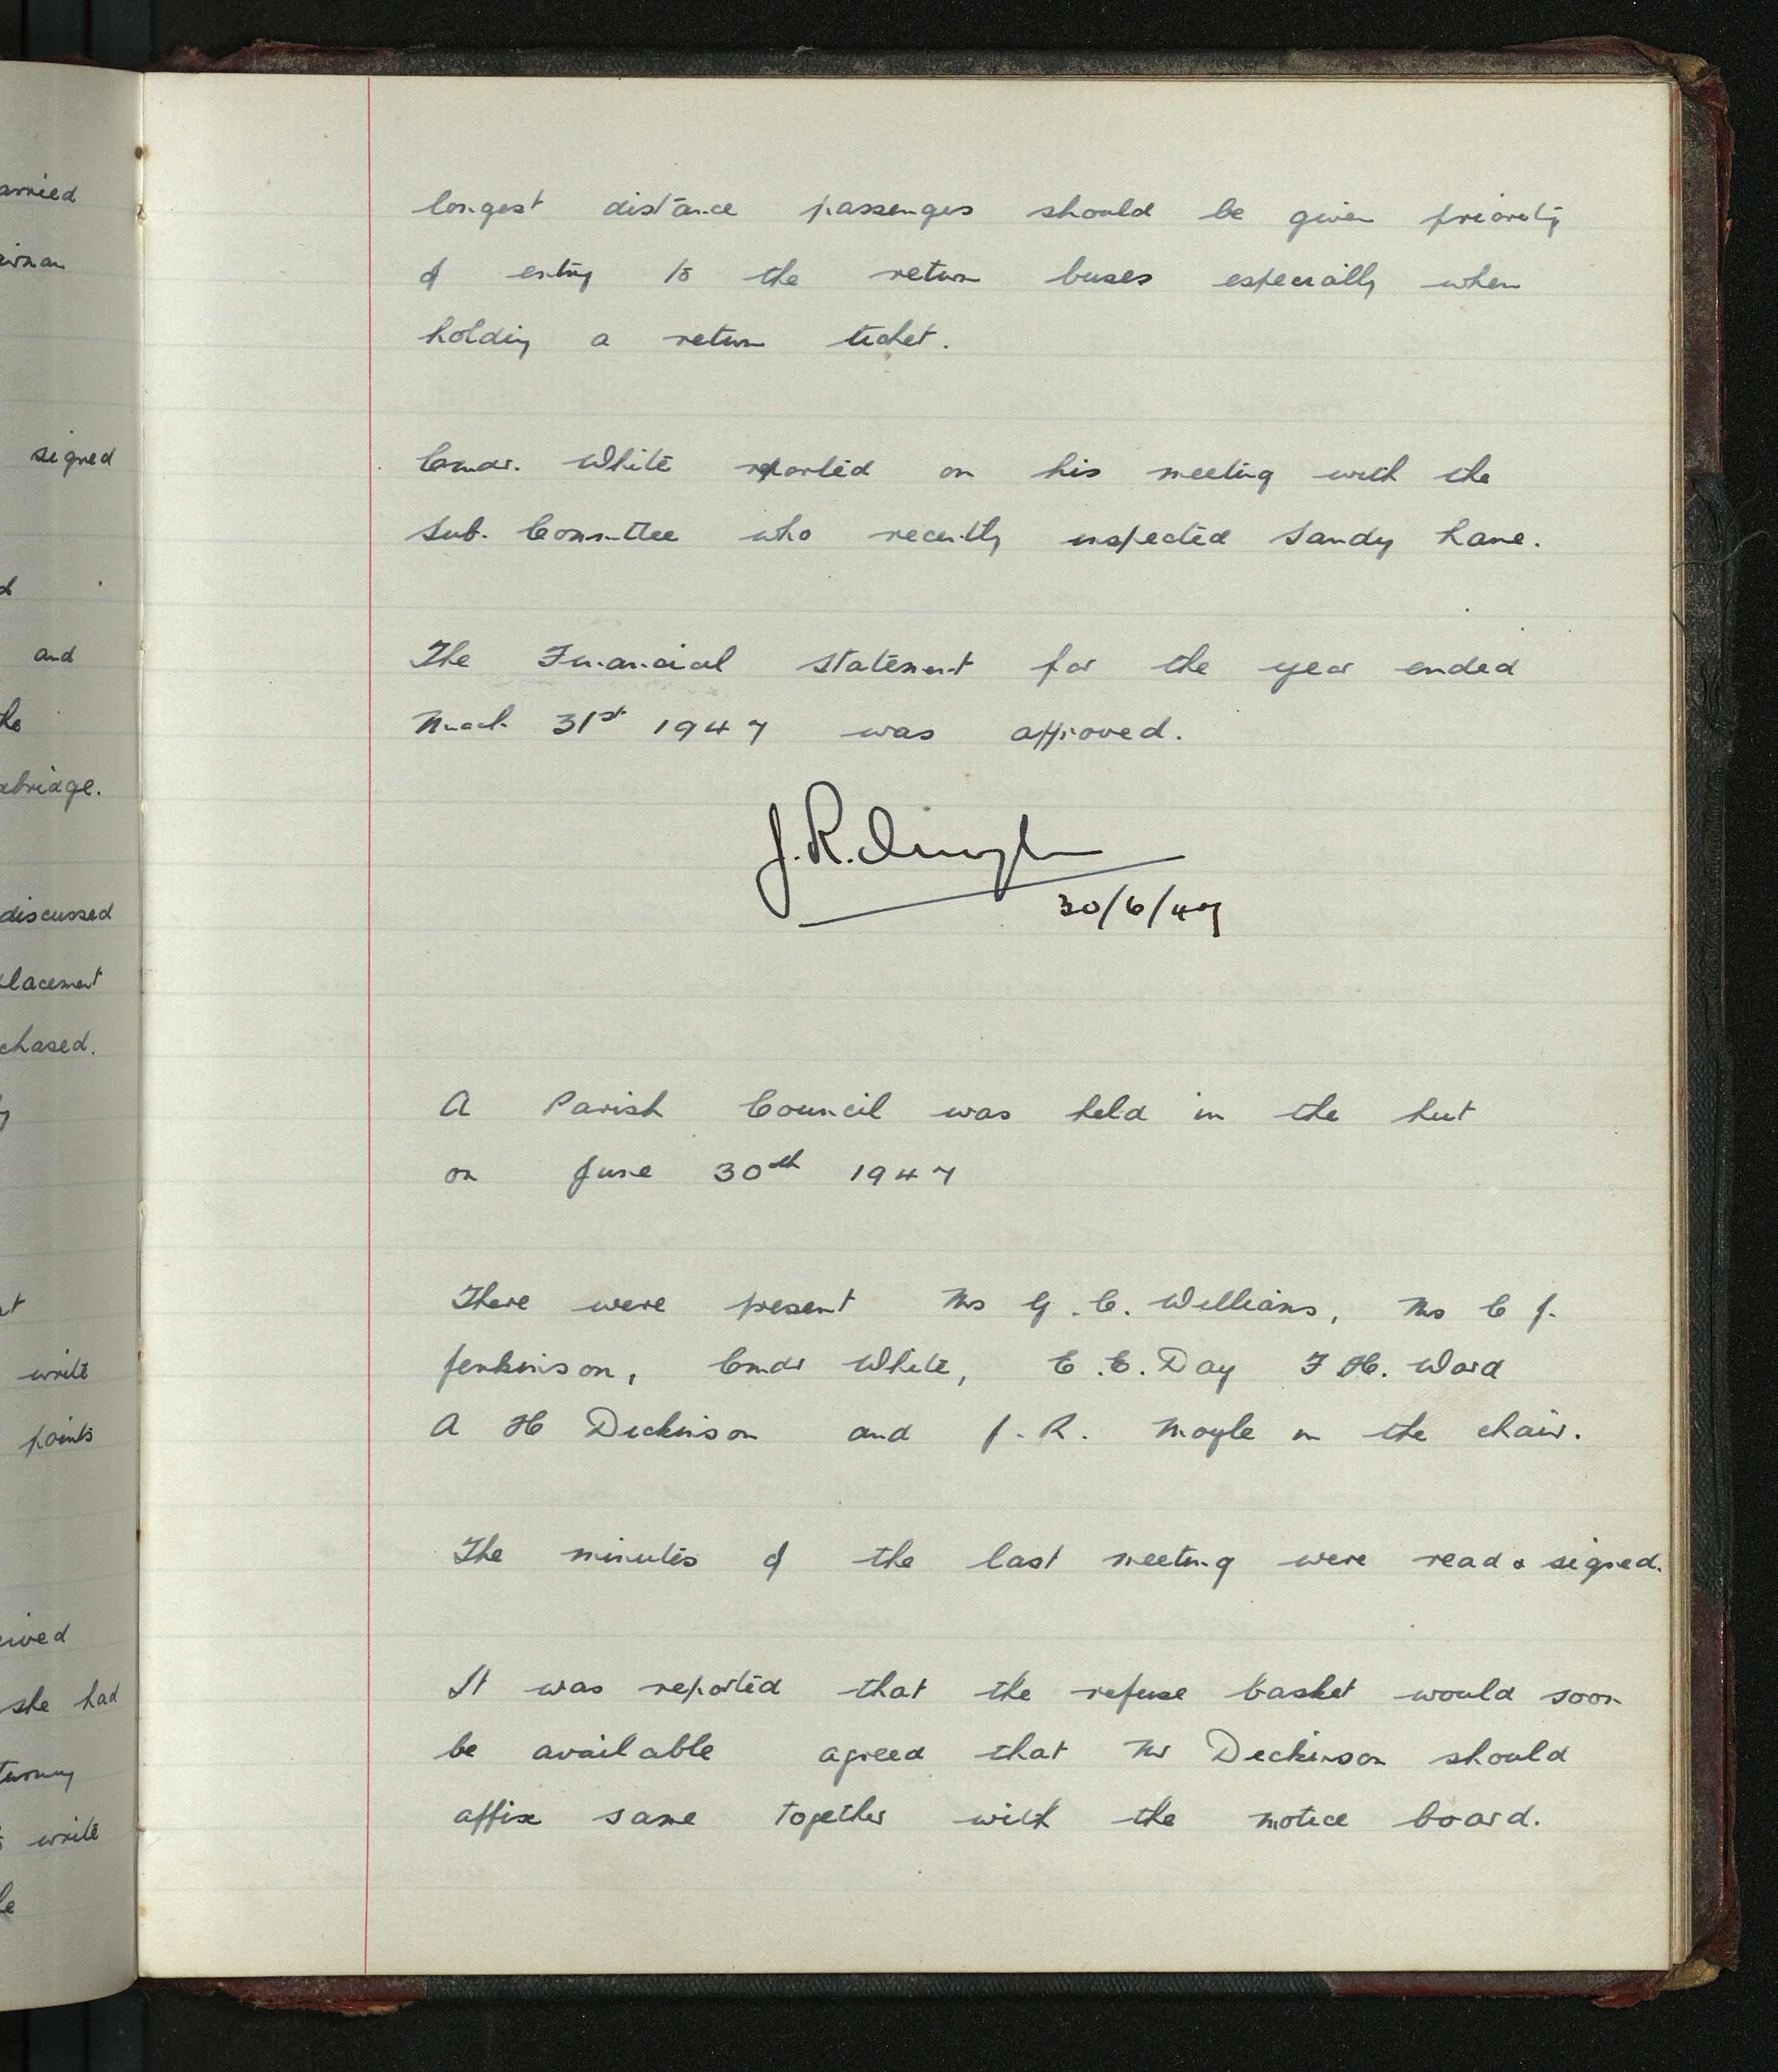 arried
irman
signed
d
and
the
bridge.
discussed
placement
chased.
y
t
write
points
eived
she had
write
le
longest distance passengers should be given priority
of entry to the return buses especially when
holding a return ticket.
Comdr. White reported on his meeting with the
Sub. Committee who recently inspected Sandy Lane.
The Financial statement for the year ended
March 31st 1947 was approved.
J. R. Moyle
30/6/47
A Parish Council was held in the hut
on June 30th 1947
There were present Mrs G. C. Williams, Mrs C J.
Jenkinson, Comdr White, E. E. Day F H. Ward
A H Dickinson and J. R. Moyle in the chair.
The minutes of the last meeting were read & signed.
It was reported that the refuse basket would soon
be available agreed that Mr Dickinson should
affix same together with the notice board.